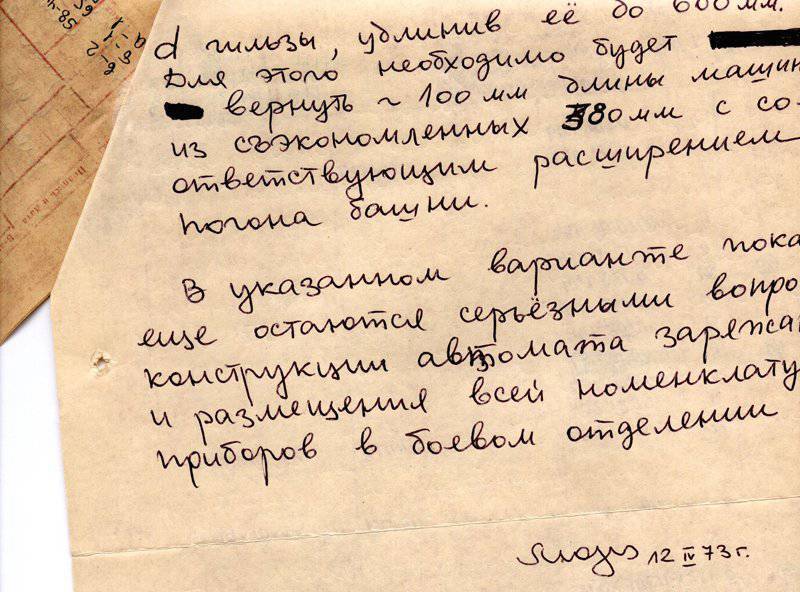 d гильзы, удлинив её до 600 мм.
Для этого необходимо будет
вернуть ~ 100 мм длины машин
из съэкономленных 380 мм с со-
ответствующим расширением
погона башни.
В указанном варианте пока
еще остаются серьёзными вопро
конструкции автомата заряжа
и размещения всей номенклату
приборов в боевом отделении
12 IV 73 г.
а
б-1
в-2
58-4
65